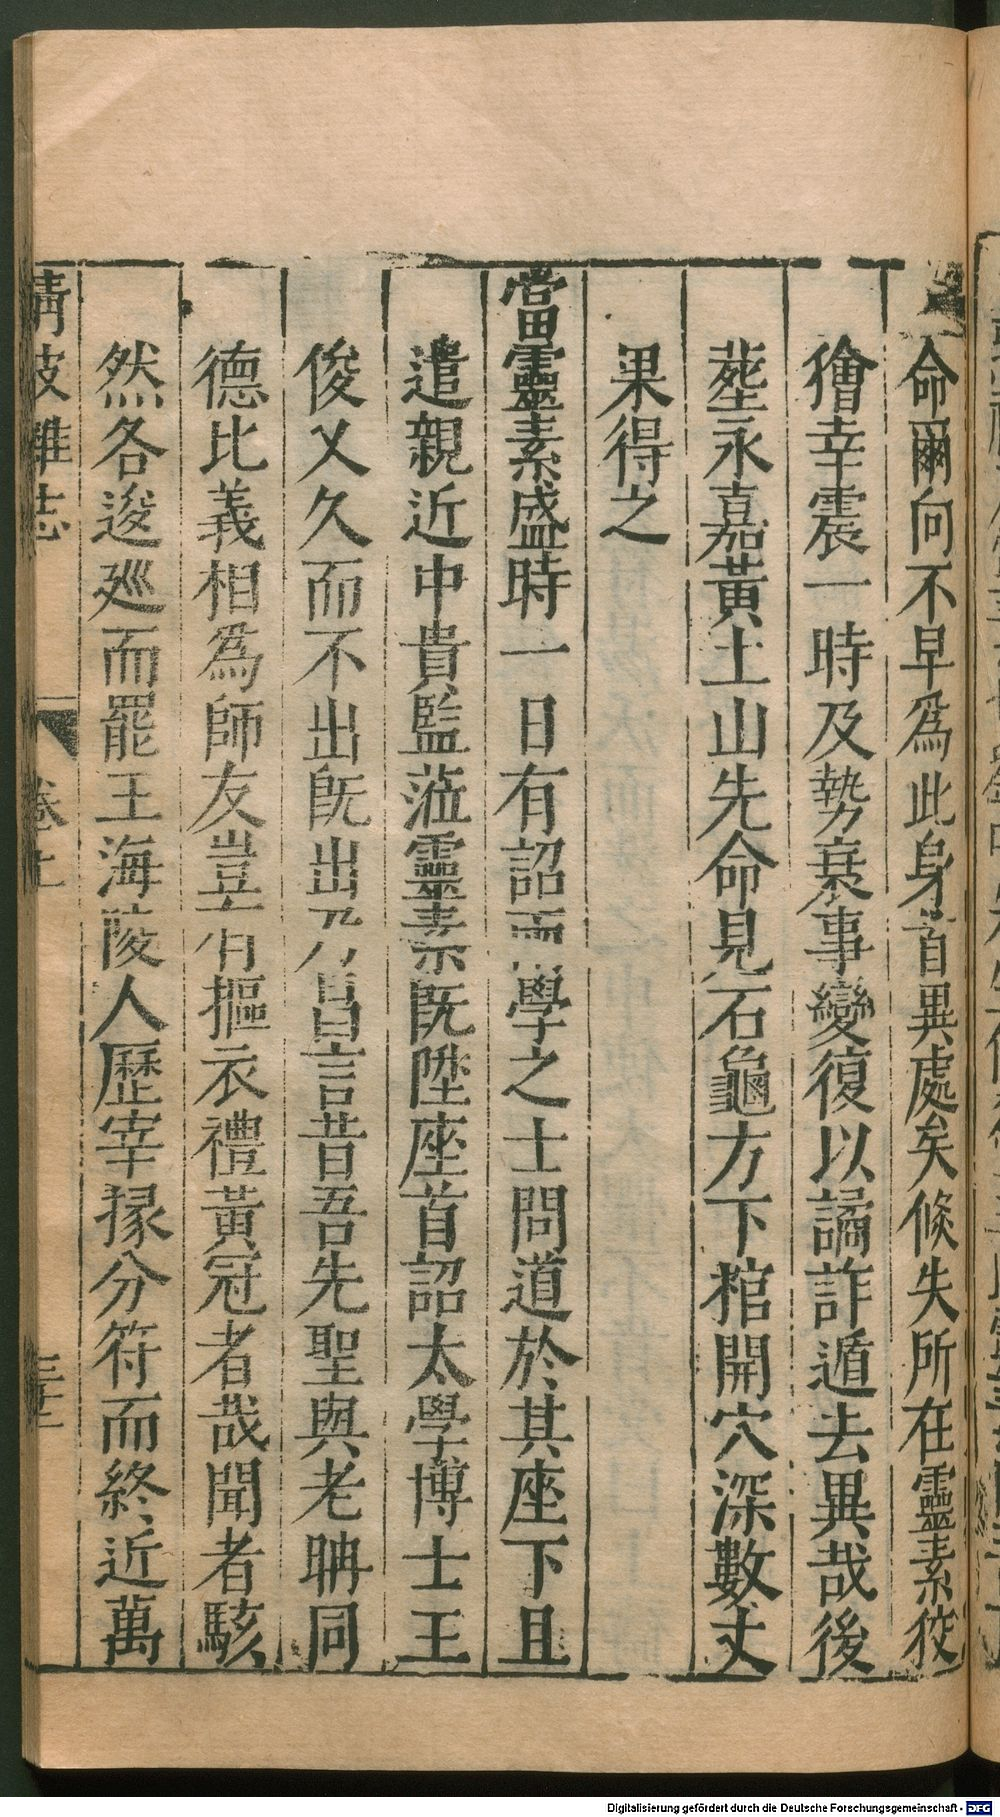 命爾向不早爲此身首異處矣倐失所在靈素狡
獪幸震一時及勢衰事變復以譎詐遁去異哉後
塟永嘉黃土山先命見石龜方下棺開穴深數丈
果得之
當靈素盛時一日有詔兩學之士問道於其座下且
遣親近中貴監蒞靈素既陞座首詔太學博士王
俊乂久而不出既出乃昌言昔吾先聖與老聃同
德比義相爲師友豈有摳衣禮黃冠者哉聞者駭
然各逡廵而罷王海陵人歷宰掾分符而終近萬
清波雜志
卷
Digitalisierung gefördert durch die Deutsche Forschungsgemeinschaft - DFG